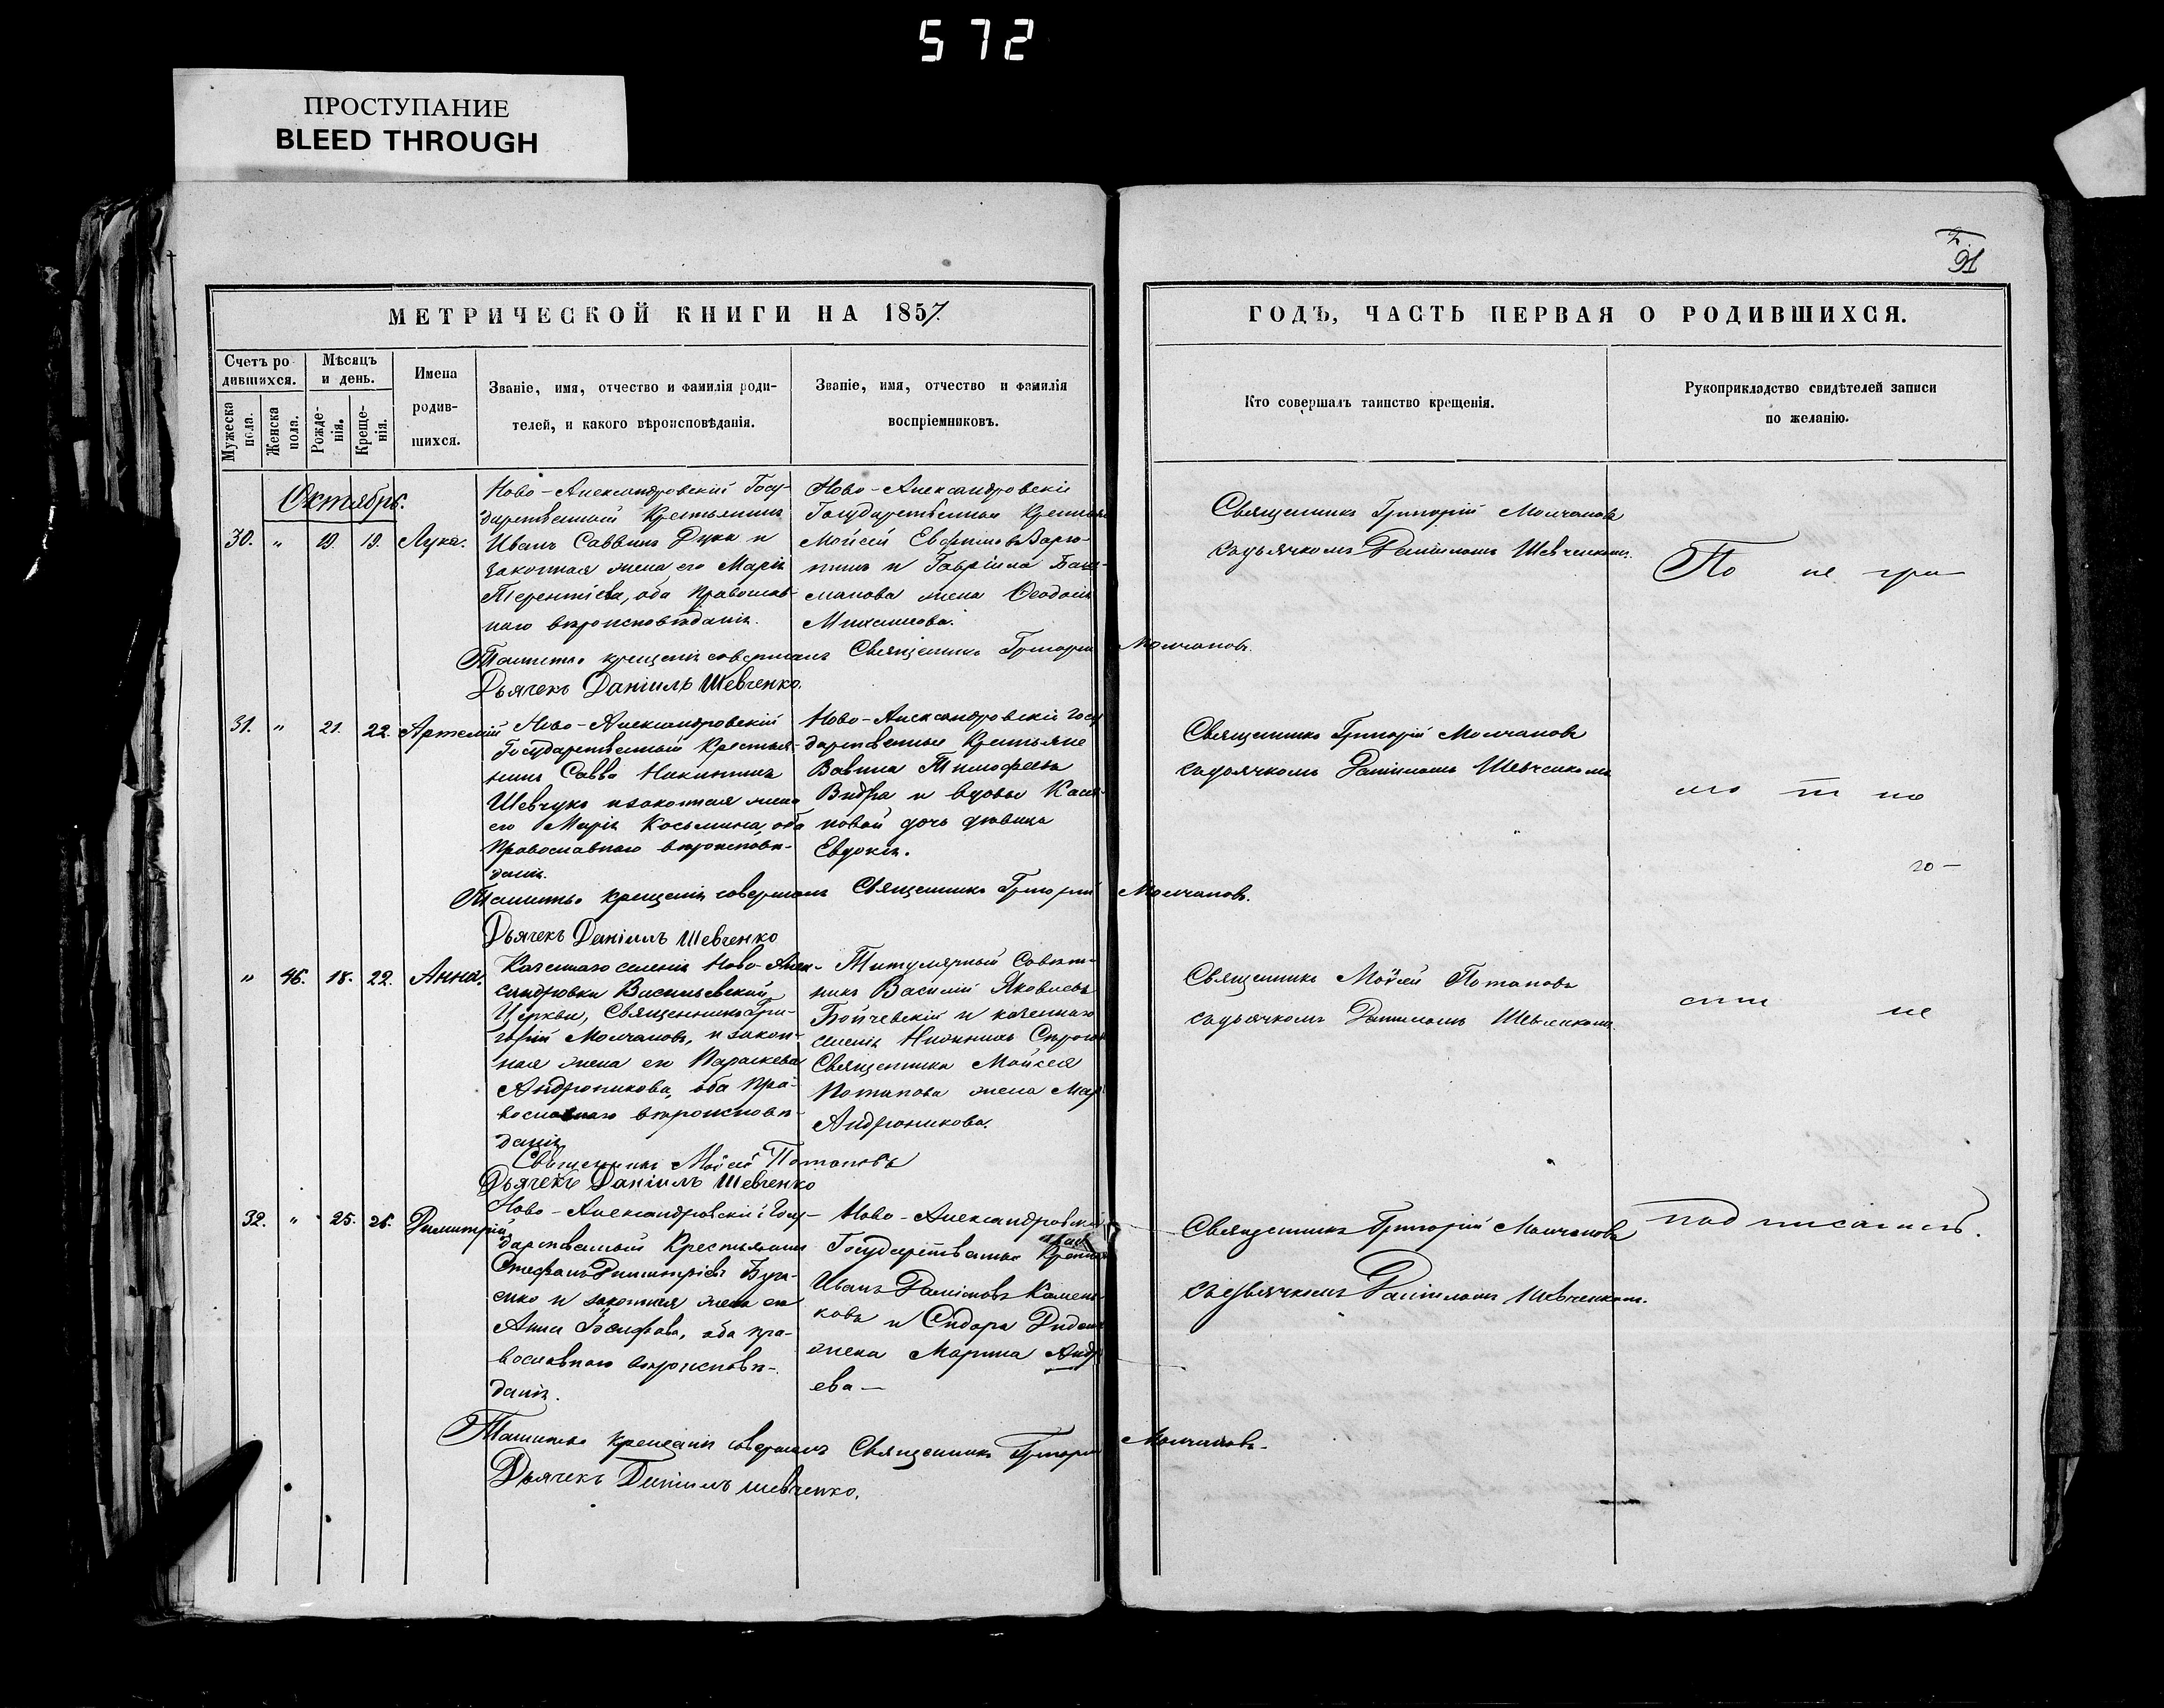 572
ПРОСТУПАНИЕ
BLEED THROUGH
91
МЕТРИЧЕСКОЙ КНИГИ НА 1857.
ГОДЪ, ЧАСТЬ ПЕРВАЯ О РОДИВШИХСЯ.
Счетъ ро
дившихся.
Мужеска
пола.
Женска
пола.
Мѣсяцъ
и день.
Рожде-
нія.
Креще-
нія.
Имена
родив-
шихся.
Званіе, имя, отчество и фамилія роди-
телей, и какого вѣроисповѣданія.
Званіе, имя, отчество и фамилія
воспріемниковъ.
Кто совершалъ таинство крещенія.
Рукоприкладство свидѣтелей записи
по желанію.
Октябрь.
30. " 19. 19. Лука.
Ново-Александровскій Госу-
дарственный Крестьянинъ
Иванъ Саввинъ Дука и
законная жена его Марія
Терентіева, оба православ-
наго вѣроисповѣданія.
Ново-Александровскіе
Государственные
Мойсей Евфимовъ
и Гавріила
жена Ѳеодосія
Михаилова.
Священникъ Григорій Молчановъ
съ дьячкомъ Даніиломъ Шевченкомъ.
По не гра
Таинство крещенія совершалъ Священникъ Григорій Молчановъ.
Дьячекъ Даніилъ Шевченко.
31. " 21. 22. Артемій
Ново-Александровскій
Государственный Крестья-
нинъ Савва Никитинъ
Шевчукъ и законная жена
его Марія Косьмина, оба
православнаго вѣроисповѣ-
данія.
Ново-Александровскіе Госу
дарственные Крестьяне
Вавила Тимофеевъ
Выдра и вдовы
дочь дѣвица
Евдокія.
Священникъ Григорій Молчановъ
съ дьячкомъ Даніиломъ Шевченкомъ
мо т но
го —
Таинство крещенія совершалъ Священникъ Григорій Молчановъ.
Дьячекъ Даніилъ Шевченко
" 46. 18. 22. Анна.
Казеннаго селенія Ново-Алек-
сандровки Васильевской
Церкви, Священникъ Гри-
горій Молчановъ, и закон-
ная жена его Параскева
Андроникова, оба пра-
вославнаго вѣроисповѣ-
данія
Титулярный Совѣт-
никъ Василій Яковлевъ
и казеннаго
селенія Нижнихъ
Священника Мойсея
Потапова жена
Андроникова.
Священникъ Мойсей Потаповъ
съ дьячкомъ Даніиломъ Шевченкомъ
сти не
Священникъ Мойсей Потаповъ
Дьячекъ Даніилъ Шевченко
32. " 25. 26. Димитрій
Ново-Александровскій Госу-
дарственный Крестьянинъ
Стефанъ Димитріевъ
и законная жена его
Анна Іосифова, оба пра-
вославнаго вѣроисповѣ-
данія.
Ново-Александровскіе
Государственные
Иванъ
и Сидора
жена Марина Андр
ева —
Священникъ Григорій Молчановъ
съ дьячкомъ Даніиломъ Шевченкомъ.
подписались.
Таинство крещенія совершалъ Священникъ Григорій Молчановъ.
Дьячекъ Даніилъ Шевченко.